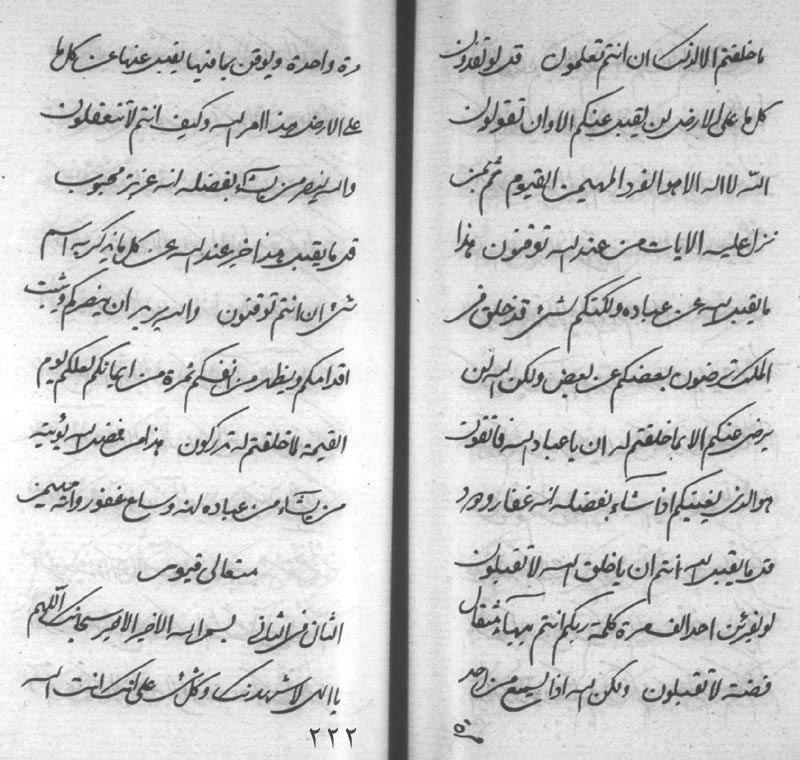 ما خلقتم الا لذلك ان انتم تعلمون قل لو تقدرون
كل ما على الارض لن يقبل عنكم الا وان تقولون
الله لا اله الا هو الفرد المهيمن القيوم ثم بمن
نزل عليه الايات من عند الله توقنون هذا
ما يقبل الله عن عباده ولكنكم لشئ قد خلق في
الملك ترضون بعضكم عن بعض ولكن الله لن
يرضى عنكم الا بما خلقتم له ان يا عباد الله فاتقون
هو الذي يغنيكم اذا شاء بفضله انه غفار ودود
قل ما يقبل الله انتم ان يا خلق الله لا تقبلون
لو يقرئن احد الف مرة كلمة ربكم انتم بهباء مثقال
فضة لا تقبلون ولكن الله اذا يسمع من احد
مرة واحدة ويوقن بما فيها يقبل عنها عن كل ما
على الارض هذا امر الله وكيف انتم لا تتعقلون
والله ينصر من يشاء بفضله انه عزيز محبوب
قل ما يقبل هذا خير عند الله عن كل ما يذكر به اسم
شئ ان انتم توقنون والله يريد ان ينصركم ويثبت
اقدامكم ويظهر من انفسكم ثمرة من ايمانكم لعلكم يوم
القيمة لما خلقتم له تدركون هذا من فضل الله يؤتيه
من يشاء من عباده انه وساع غفور وانه مهيمن
متعالي قيوم
الثاني في الثاني بسم الله الاخير الاخير سبحانك اللهم
يا الهي لاشهدنك وكل شئ على انك انت الله
٢٢٢